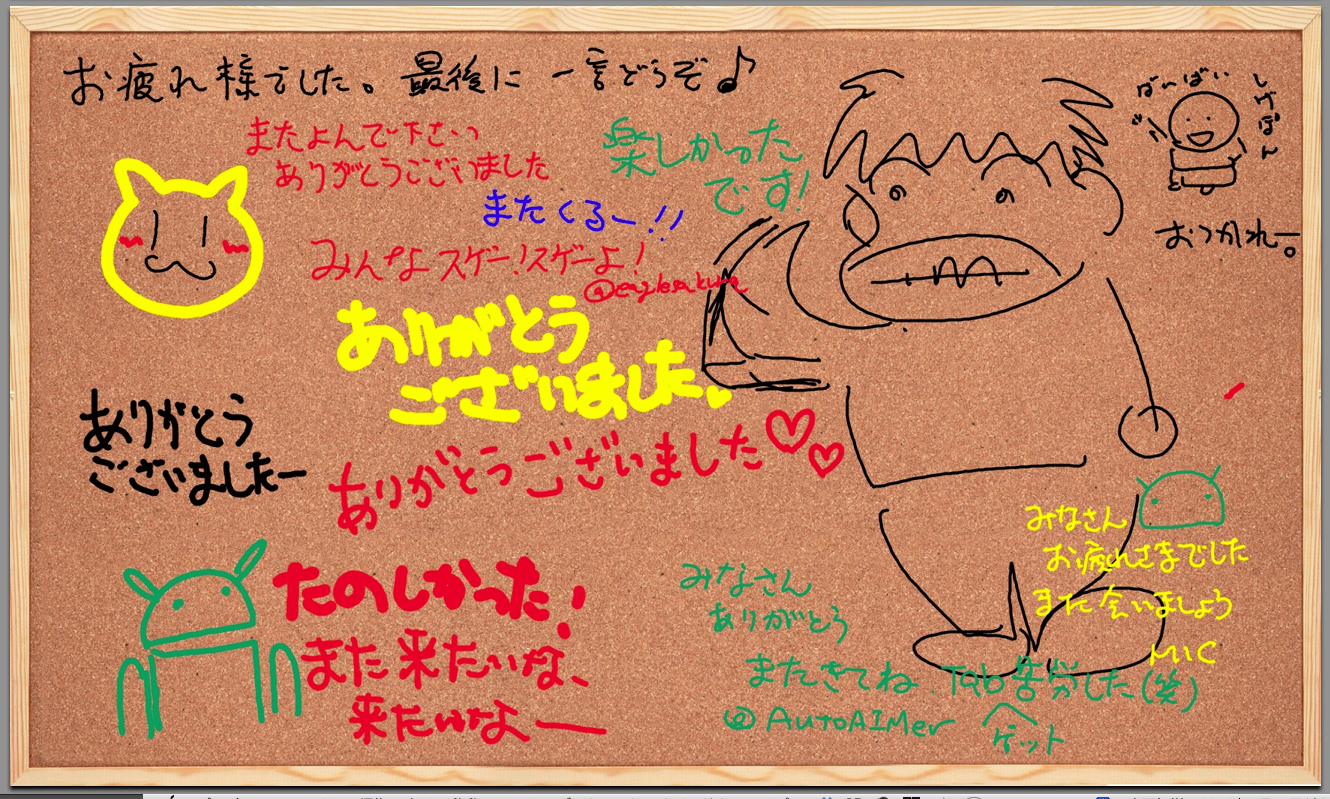 お疲れ様でした。最後に一言どうぞ♪
またよんで下さいっ
ありがとうございました
楽しかった
です!
またくるー!!
みんなスゲー!スゲーよ!
@eaglesakura
ばいばい
しげぽん
おつかれー。
ありがとう
ございました
ありがとう
ございましたー
ありがとうございました
たのしかった!
また来たいな、
来たいなよー
みなさん
お疲れさまでした
また会いましょう
MIC
みなさん
ありがとう
またきてね Tab苦労した(笑)
@AutoAIMer
ゲット